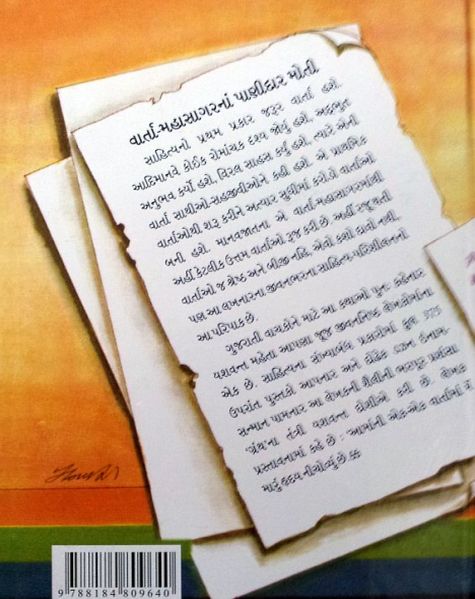 વાર્તા-મહાસાગરનાં પાણીદાર મોતી
સાહિત્યનો પ્રથમ પ્રકાર જરૂર વાર્તા હશે.
આદિમાનવે કોઈક રોમાંચક દૃશ્ય જોયું હશે, અદ્ભુત
અનુભવ કર્યો હશે, વિરલ સાહસ કર્યું હશે, ત્યારે એની
વાર્તા સાથીઓ-સહજીવીઓને કહી હશે. એ પ્રાથમિક
વાર્તાઓથી શરૂ કરીને અત્યાર સુધીમાં કરોડો વાર્તાઓ
બની હશે. માનવજાતના એ વાર્તા-મહાસાગરમાંથી
અહીં કેટલીક ઉત્તમ વાર્તાઓ રજૂ કરી છે. અહીં રજૂ થતી
વાર્તાઓ જ શ્રેષ્ઠ અને બીજી નહિ, એવો કશો દાવો નથી,
પણ આ લખનારના જીવનભરના સાહિત્ય-પરિશીલનનો
આ પરિપાક છે.
ગુજરાતી વાચકોને માટે આ કથાઓ પુનઃ કહેનાર
યશવન્ત મહેતા આપણા જૂજ જીવનનિષ્ઠ લેખકોમાંના
એક છે. સાહિત્યના સંખ્યાબંધ પ્રકારોમાં કુલ
ઉપરાંત પુસ્તકો આપનાર અને ડઝનેક
સન્માન પામનાર આ લેખકની શૈલીની ભરપૂર પ્રશંસા
'ગ્રંથ'ના તંત્રી યશવન્ત દોશીએ કરી છે. લેખક
પ્રસ્તાવનામાં કહે છે : 'આમાંની એક-એક વાર્તામાં મેં
મારું હૃદય નીચોવ્યું છે.'
9 788184 809640